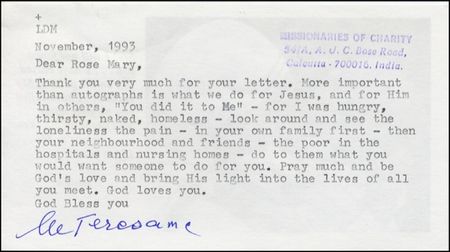 +
LDM
MISSIONARIES OF CHARITY
54/A, A. J. C. Bose Road,
Calcutta - 700016. India.
November, 1993
Dear Rose Mary,
Thank you very much for your letter. More important
than autographs is what we do for Jesus, and for Him
in others, "You did it to Me" - for I was hungry,
thirsty, naked, homeless - look around and see the
loneliness the pain - in your own family first - then
your neighbourhood and friends - the poor in the
hospitals and nursing homes - do to them what you
would want someone to do for you. Pray much and be
God's love and bring His light into the lives of all
you meet. God loves you.
God Bless you
M Teresa mc